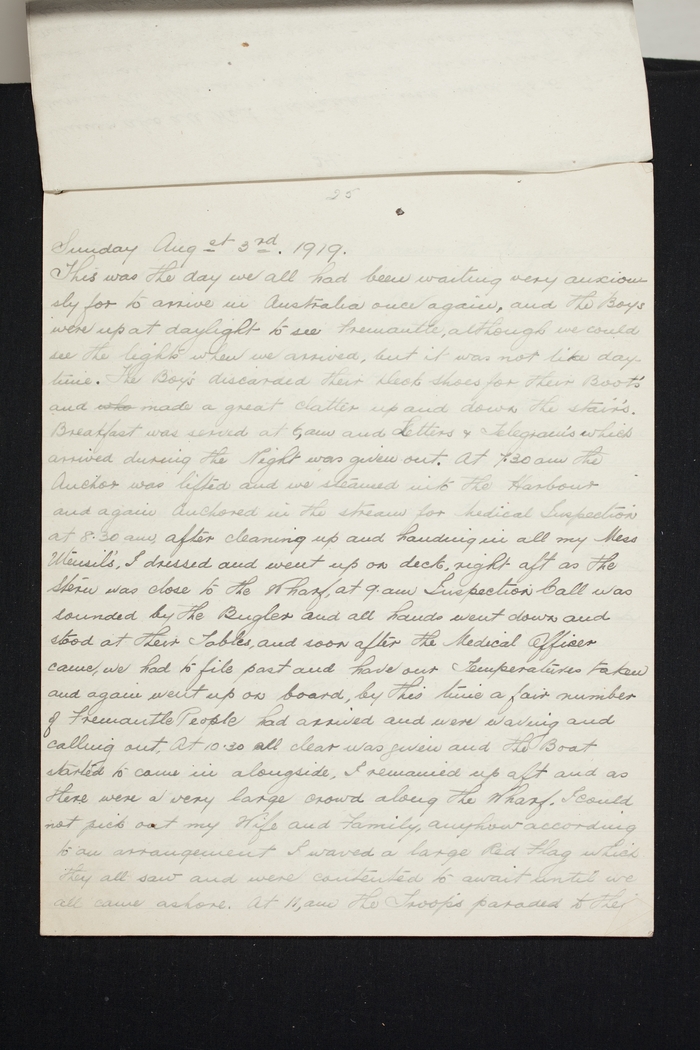 25
Sunday Aug st 3rd. 1919.
This was the day we all had been waiting very anxiou-
sly for to arrive in Australia once again, and the Boys
were up at daylight to see Fremantle, although we could
see the lights when we arrived, but it was not like day-
time. The Boy's discarded their shoes for their Boots
and who made a great clatter up and down the stair's.
Breakfast was served at 6,am and Letters & Telegram's which
arrived during the Night was given out. At 7.30 am the
Anchor was lifted and we steamed into the Harbour
and again Anchored in the stream for Medical Inspection
at 8.30 am, after cleaning up and handing in all my Mess
Utensil's, I dressed and went up on deck, right aft as the
Stern was close to the Wharf, at 9.am Inspection Call was
sounded by the Bugler and all hands went down and
stood at their Tables, and soon after the Medical Officer
came, we had to file past and have our Temperatures taken
and again went up on board, by this time a fair number
of Fremantle People had arrived and were waving and
calling out. At 10.30 all clear was given and the Boat
started to come in alongside, I remained up aft and as
there were a very large crowd along the Wharf. I could
not pick out my Wife and Family, anyhow according
to an arrangement I waved a large Red Flag which
they all saw and were contented to await until we
all came ashore. At 11,am the Troop's paraded to their